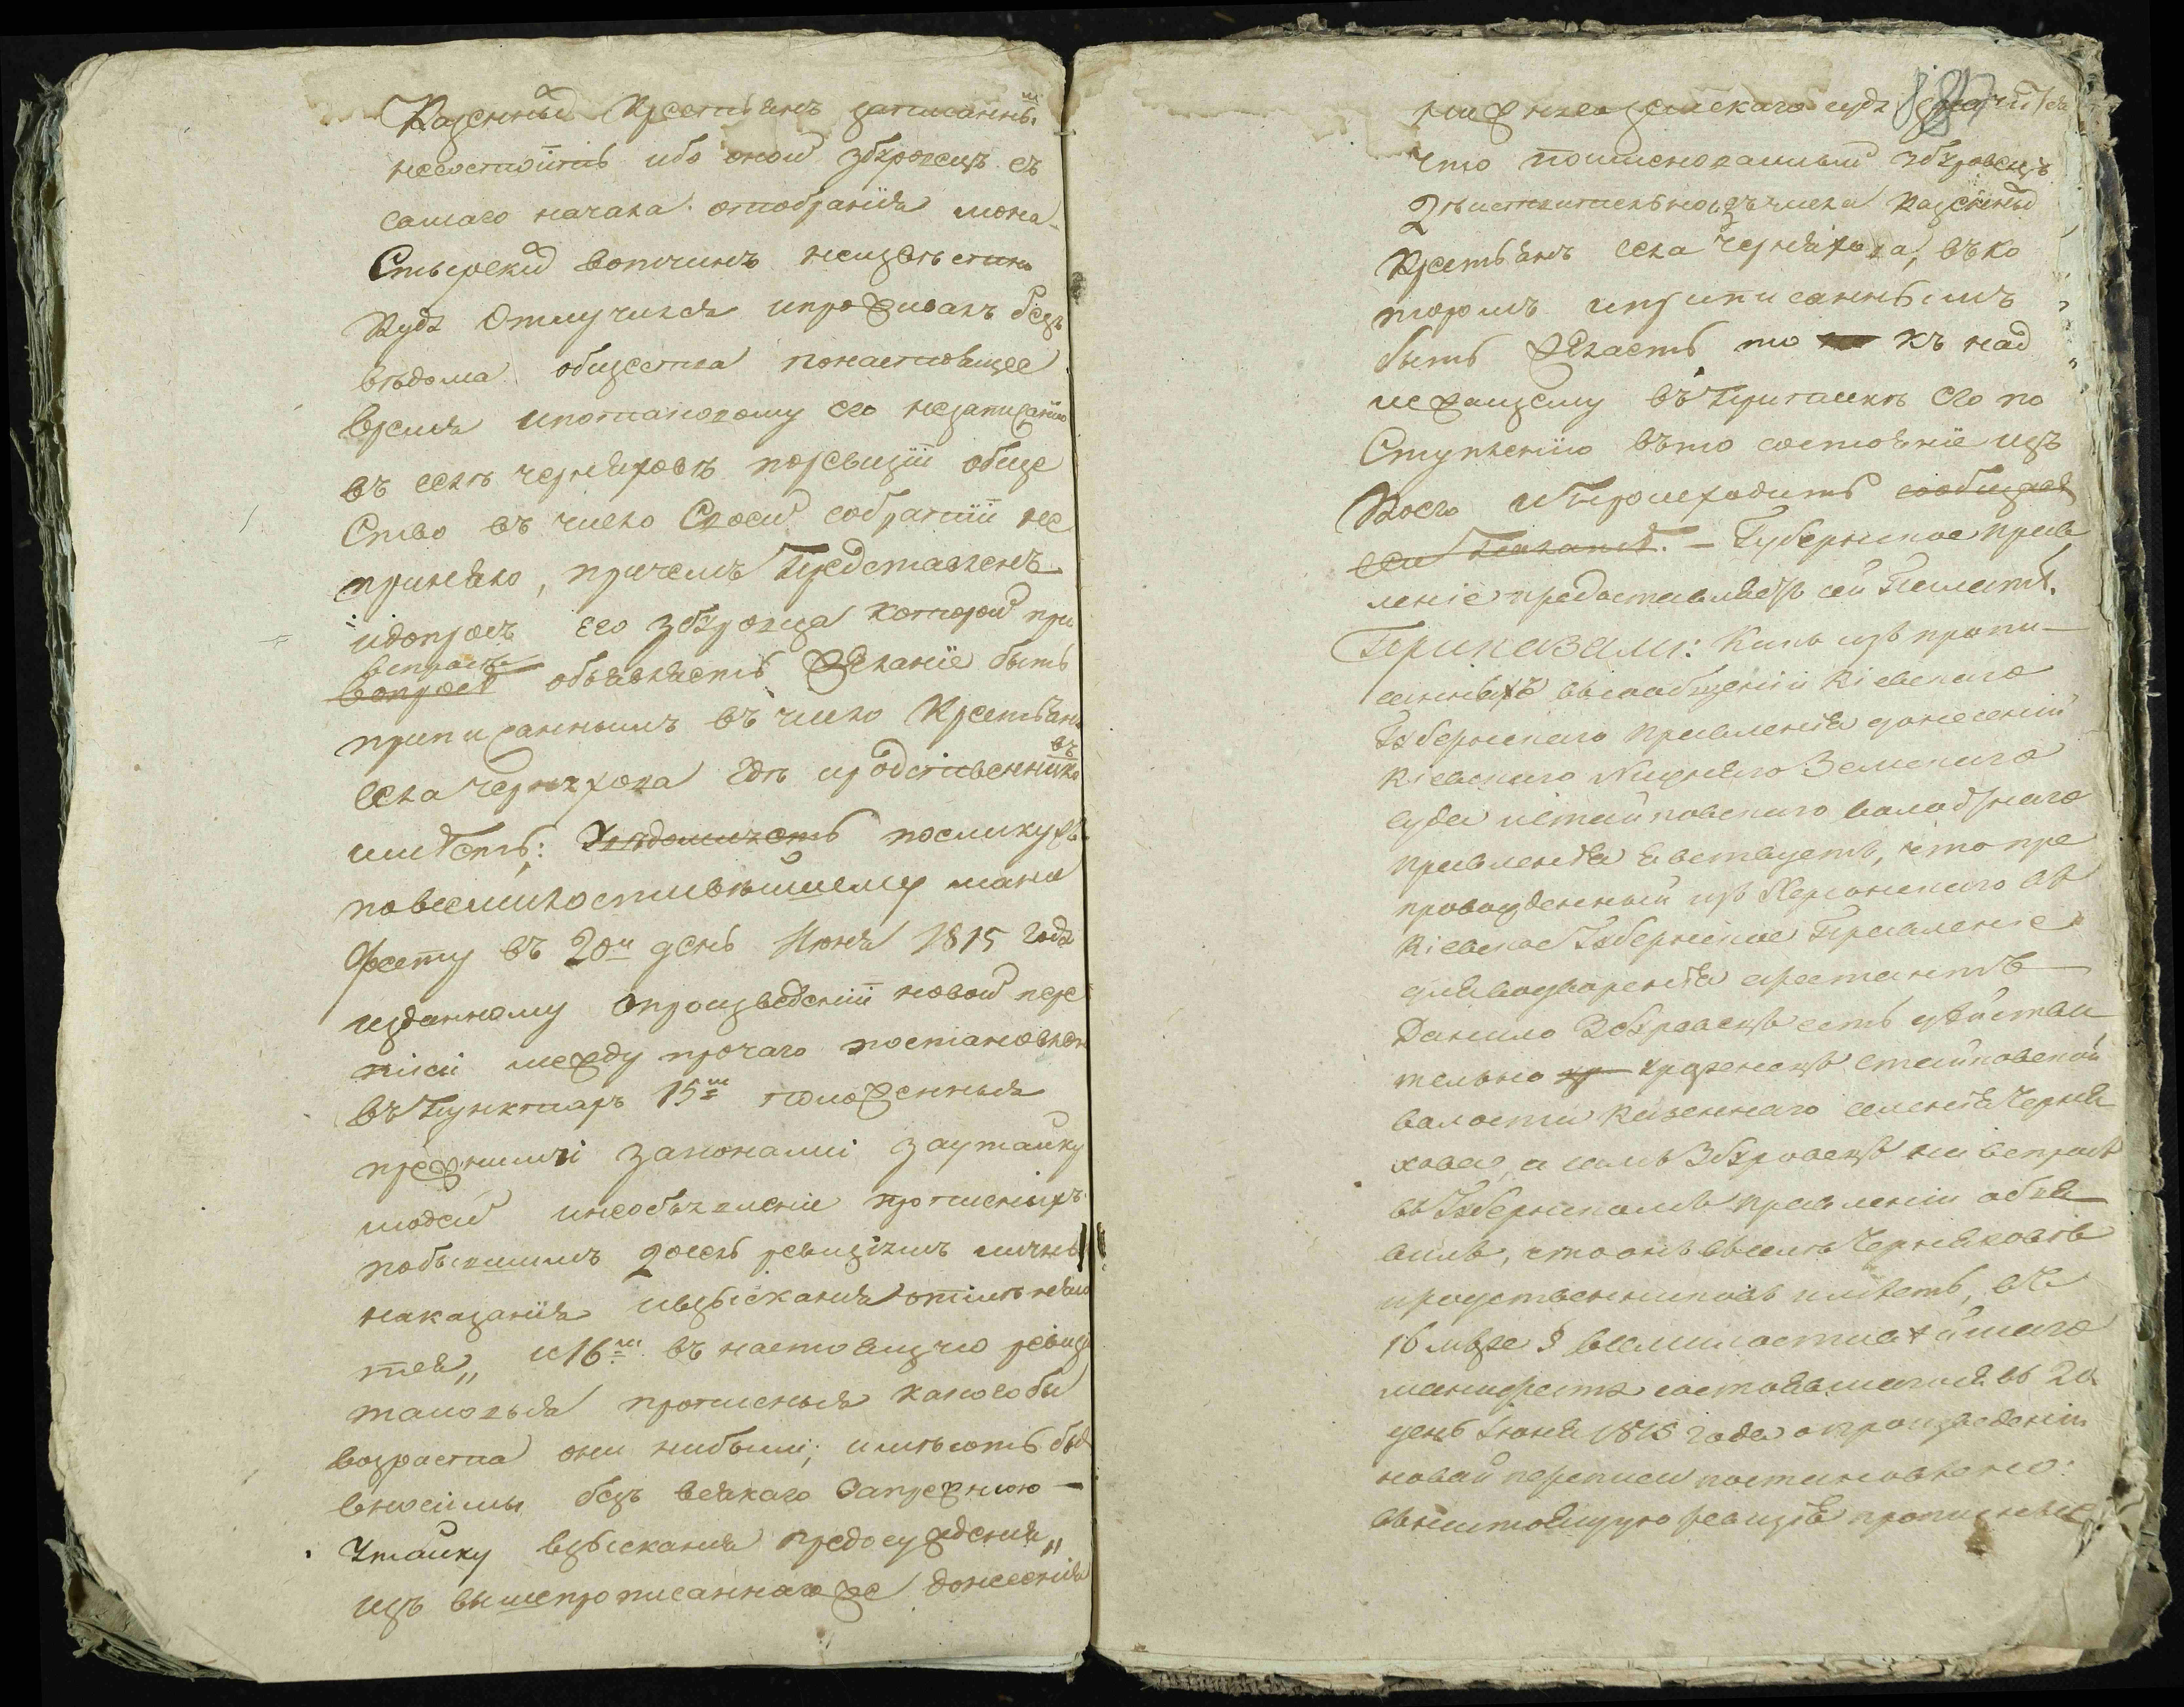 Казенныхъ Крестьянъ записаннымъ
несостоитъ ибо оной збуровецъ съ
самаго начала отобранія мона-
Стырскихъ вотчинъ неизвестно
Куда Отлучился ипроживалъ безъ
вѣдома общества понастоящее
время ипотаковому его незаписанію
въ селѣ черняховѣ поревизіи обще
Ство въ число Своей собратіи не
приняло, причемъ Представленъ
идопросъ его збуровца которой при
вспросѣ
вопросѣ объявляетъ Желаніе быть
приписаннымъ въ число Крестьянъ
села Черняхова Где иродственниковъ
имѣетъ: Увѣдомляетъ поеликужъ
повсемилостивѣйшему мани
Фесту въ 20й день Июня 1815 года
изданному опроизведеніи новой пере
писи между прочаго постановлено
въ Пунктахъ 15мъ положенныя
прежними законами заутайку
людей инеобъявленіе прописныхъ
побывшимъ досель ревизіямъ личныя
наказанія ивзысканія отмѣняю
тся„ и 16мъ въ настоящую ревизію
таковыя прописныя каковобы
возраста они нибыли, имѣютъ быть
вносимы безъ всякаго Запрежнюю —
Утайку взысканія предосужденія„
изъ вышепрописаннагоже донесенія
нижняго земскаго суда значится
что поименованный збуровецъ
Дѣйствительно изъ числа Казенныхъ
Крестьянъ села Черняхова, въко
торомъ иприписаннымъ
быть Желаетъ то къ над
лежащему въ Приказѣ его по
Ступленію въто состояніе изъ
Коего и Происходитъ сообщает
сей Палатѣ. — Губернское правле
леніе предоставляетъ сей Палатѣ.
Приказали: Какъ изъ пропи-
санныхъ въсообщеніи Кіевскаго
Губернскаго Правленія донесеній
Кіевскаго Нижняго Земскаго
суда иСтайковскаго волостнаго
правленія явствуетъ, что пре
провожденный изъ Херсонскаго въ
Кіевское Губернское Правленіе
дляводворенія арестантъ
Данило Збуровецъ есть дѣйстви
тельно уроженецъ Стайковской
волости казеннаго селенія Черня
хова, а самъ Збуровецъ на вспросѣ
въ Губернскомъ правленіи объя
вилъ, что онъ въселѣ Черняховѣ
иродственниковъ имѣетъ, въ
16 мъже § всемилостивѣйшаго
манифеста состоявшагося въ 20.
день Іюня 1815 года опроизведеніи
новой переписи постановлено:
въ настоящую ревизію прописныя